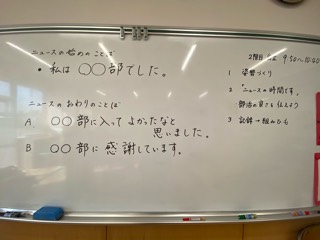 ニュースの始めのことば
・私は ○○部でした。
ニュースのおわりのことば
A ○○部に入って よかったなと
思いました。
B ○○部に 感謝しています。
2限目 9:50〜10:40
1 姿勢づくり
2 "ニュースの時間です。
部活の良さを伝えよう
3 記録